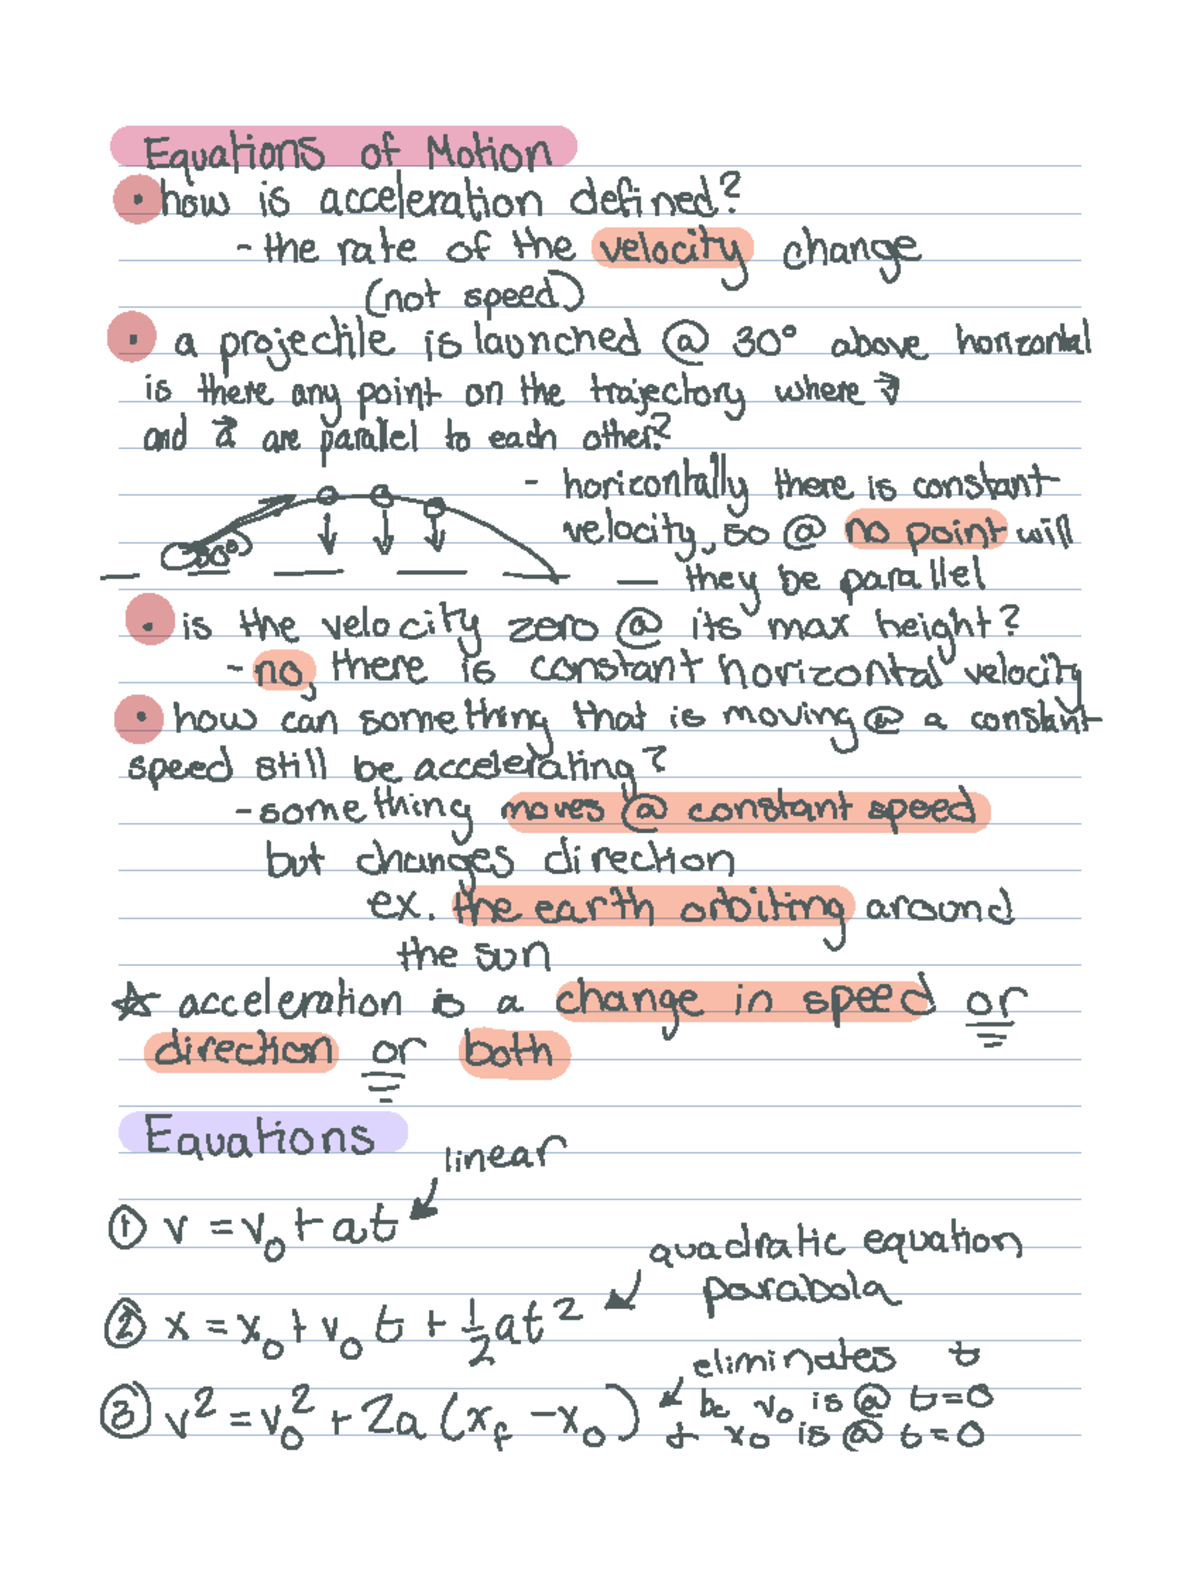 Equations of Motion
• how is acceleration defined?
- the rate of the velocity change
(not speed)
• a projectile is launched @ 30° above horizontal
is there any point on the trajectory where v⃗
and a⃗ are parallel to each other?
30°
- horizontally there is constant
velocity, so @ no point will
they be parallel
• is the velocity zero @ its max height?
- no, there is constant horizontal velocity
• how can something that is moving @ a constant
speed still be accelerating?
- something moves @ constant speed
but changes direction
ex. the earth orbiting around
the sun
☆ acceleration is a change in speed or
direction or both
Equations
linear
① v = v₀ + at
quadratic equation
parabola
② x = x₀ + v₀ t + ½at²
eliminates t
bc v₀ is @ t=0
+ x₀ is @ t=0
③ v² = v₀² + 2a (x_f - x₀)